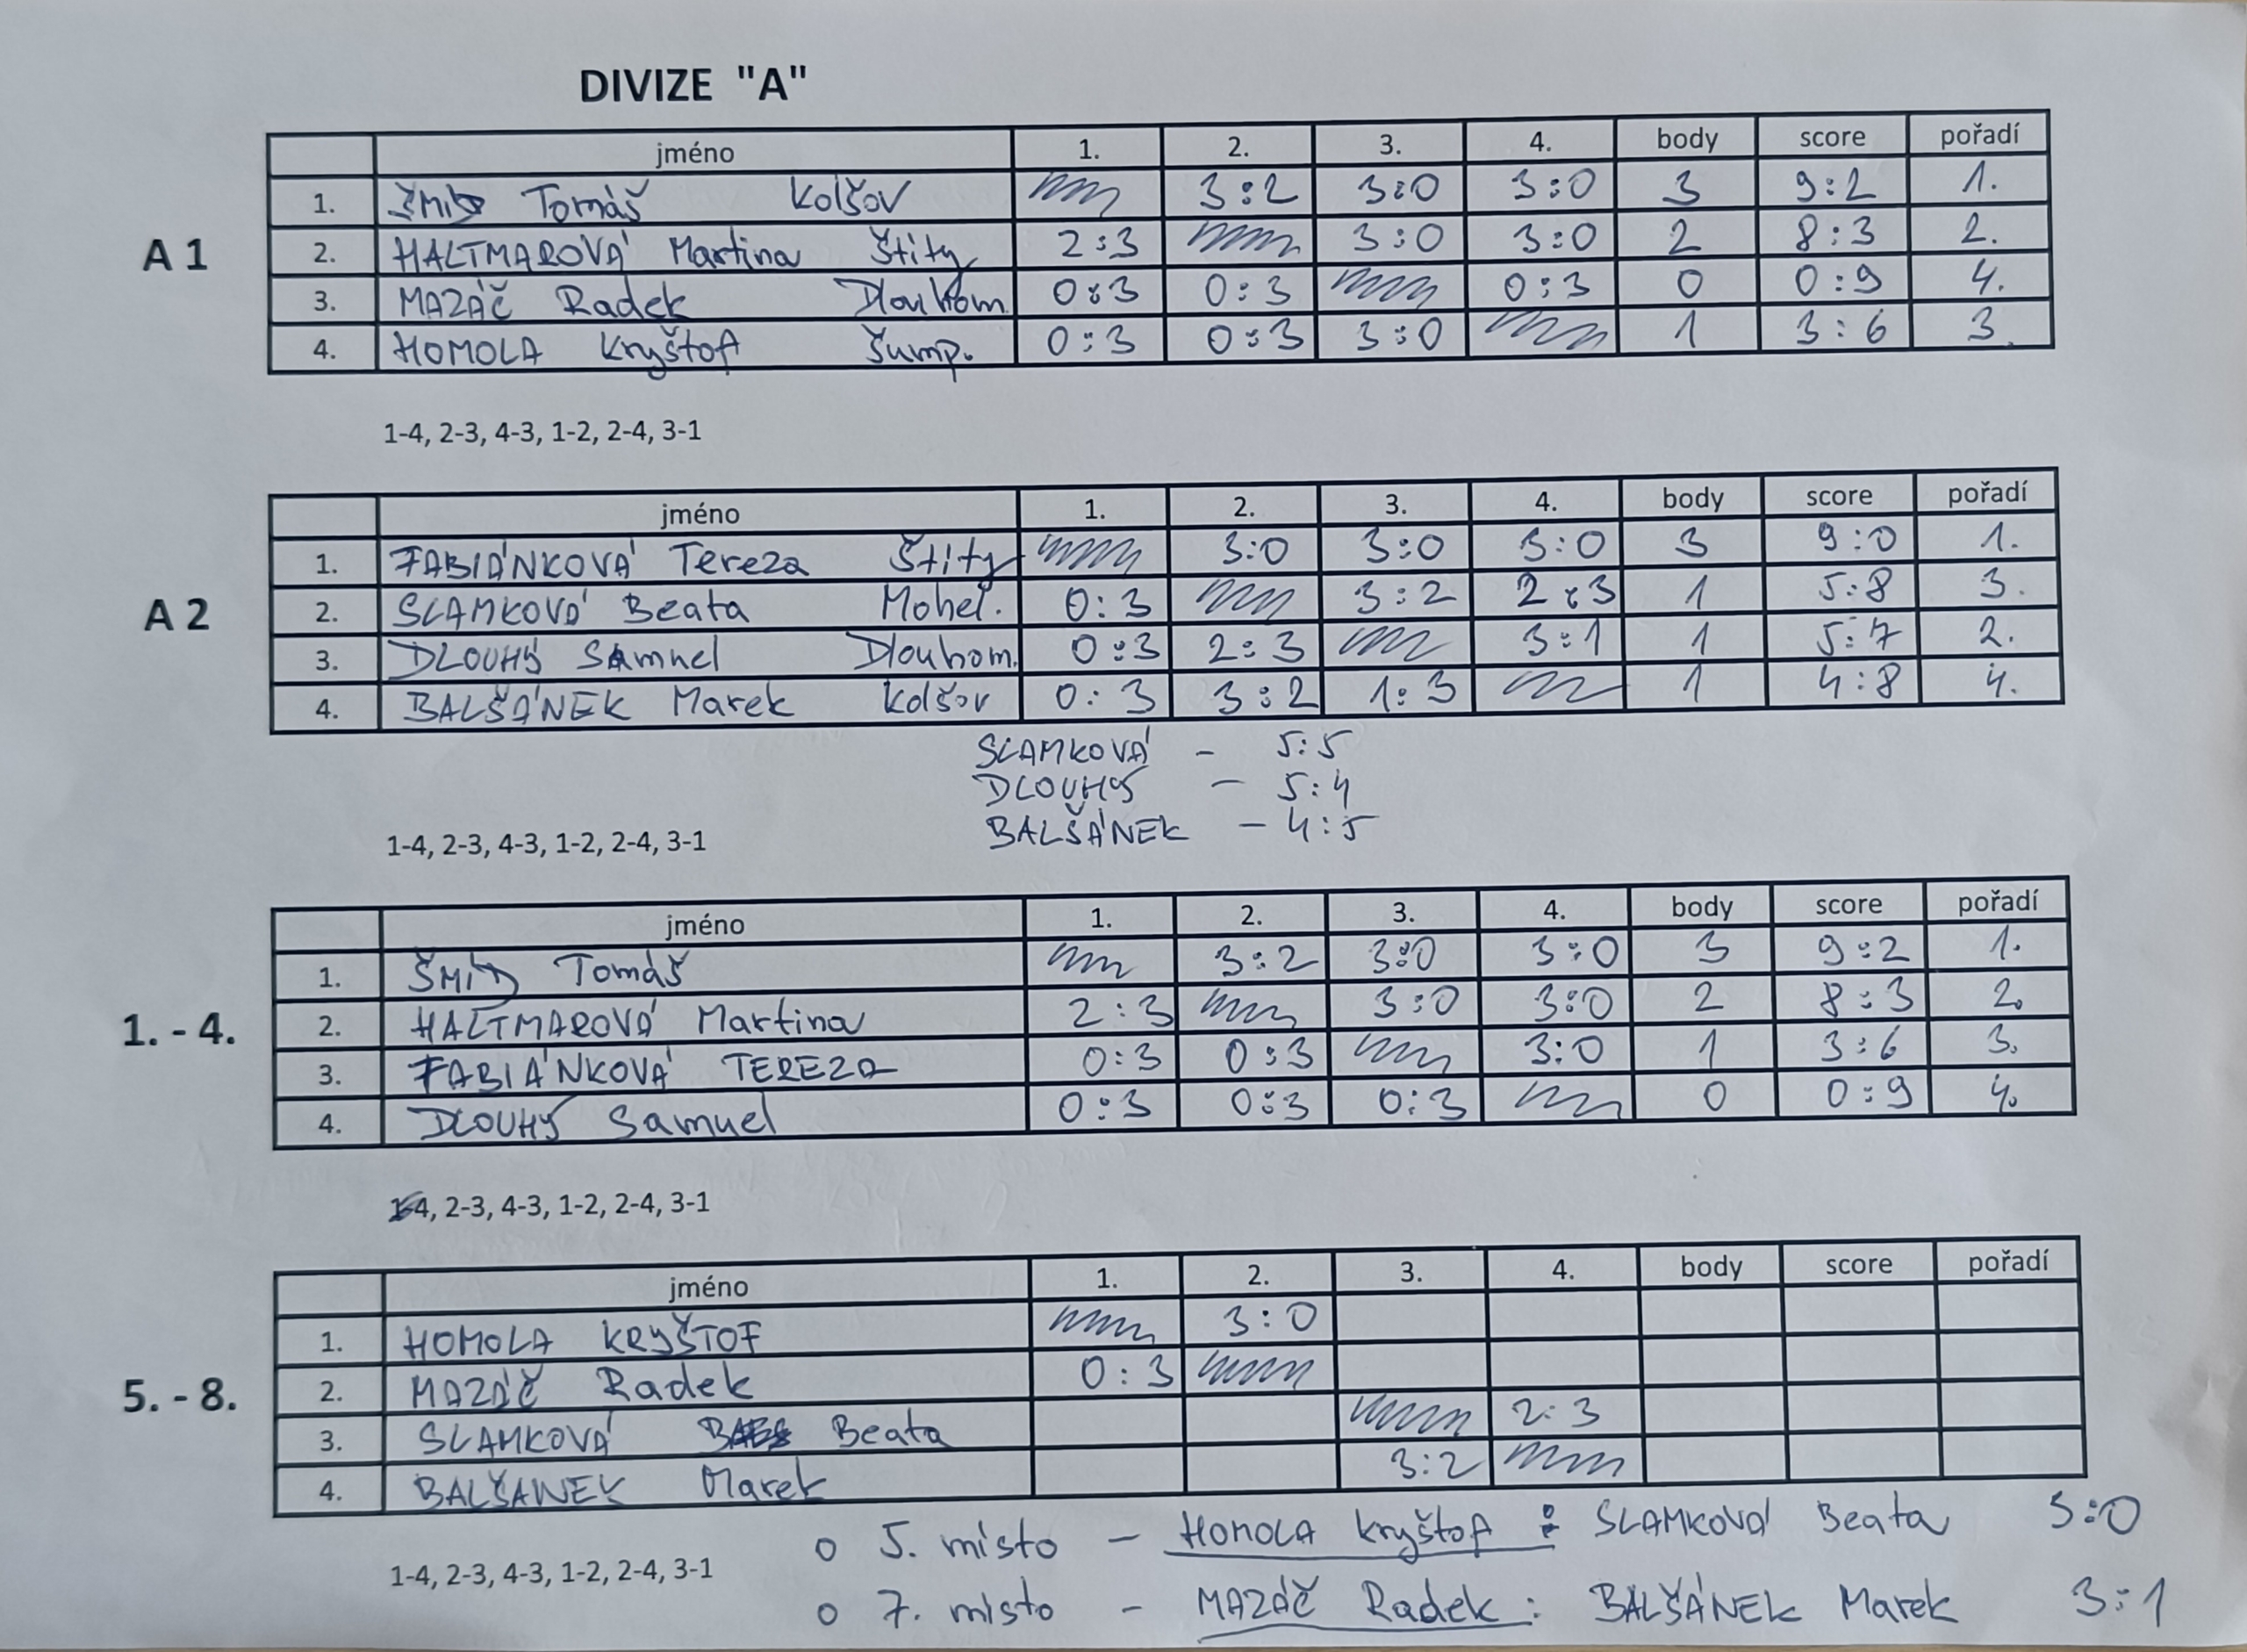 DIVIZE "A"
jméno 1. 2. 3. 4. body score pořadí
1. ŠMÍD Tomáš Kolšov 3:2 3:0 3:0 3 9:2 1.
A 1
2. HALTMAROVÁ Martina Štíty 2:3 3:0 3:0 2 8:3 2.
3. MAZÁČ Radek Dlouhom. 0:3 0:3 0:3 0 0:9 4.
4. HOMOLA Kryštof Šump. 0:3 0:3 3:0 1 3:6 3.
1-4, 2-3, 4-3, 1-2, 2-4, 3-1
jméno 1. 2. 3. 4. body score pořadí
1. FABIÁNKOVÁ Tereza Štíty 3:0 3:0 3:0 3 9:0 1.
A 2
2. SLAMKOVÁ Beata Mohel. 0:3 3:2 2:3 1 5:8 3.
3. DLOUHÝ Samuel Dlouhom. 0:3 2:3 3:1 1 5:7 2.
4. BALŠÁNEK Marek Kolšov 0:3 3:2 1:3 1 4:8 4.
SLAMKOVÁ - 5:5
DLOUHÝ - 5:4
BALŠÁNEK - 4:5
1-4, 2-3, 4-3, 1-2, 2-4, 3-1
jméno 1. 2. 3. 4. body score pořadí
1. ŠMÍD Tomáš 3:2 3:0 3:0 3 9:2 1.
1. - 4.
2. HALTMAROVÁ Martina 2:3 3:0 3:0 2 8:3 2.
3. FABIÁNKOVÁ TEREZA 0:3 0:3 3:0 1 3:6 3.
4. DLOUHÝ Samuel 0:3 0:3 0:3 0 0:9 4.
1-4, 2-3, 4-3, 1-2, 2-4, 3-1
jméno 1. 2. 3. 4. body score pořadí
1. HOMOLA KRYŠTOF 3:0
5. - 8.
2. MAZÁČ Radek 0:3
3. SLAMKOVÁ Beata 2:3
4. BALŠANEK Marek 3:2
o 5. místo - HOMOLA Kryštof : SLAMKOVÁ Beata 3:0
1-4, 2-3, 4-3, 1-2, 2-4, 3-1
o 7. místo - MAZÁČ Radek : BALŠÁNEK Marek 3:1